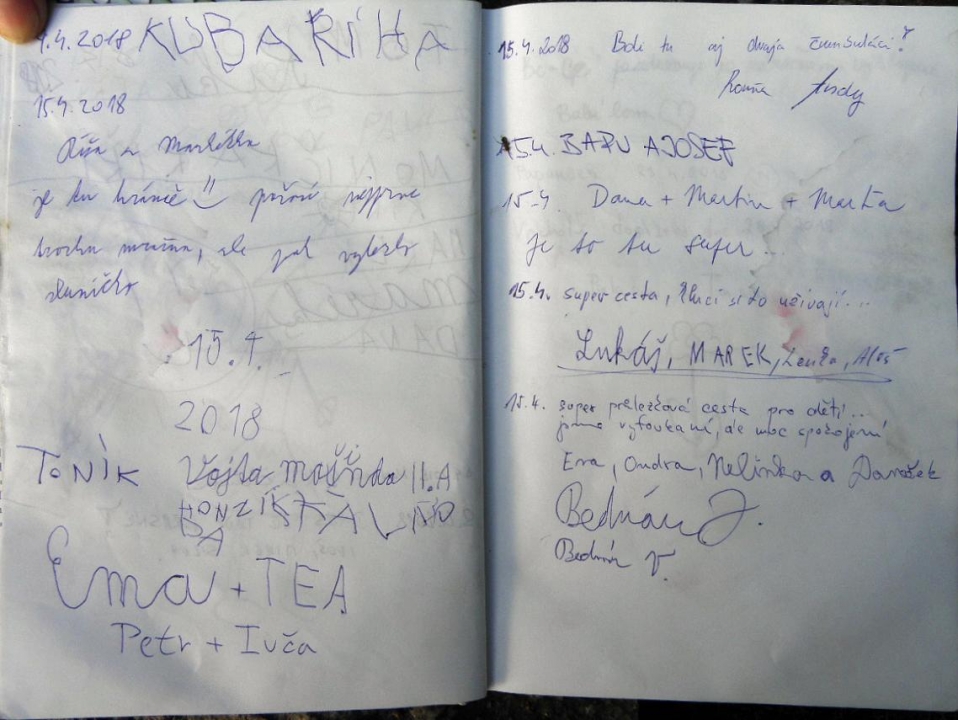 .4.2018 KUBA ŘÍHA
15.4.2018
Ríša a Markétka
je tu hráníč !! první nejprve
trochu mračna, ale pak vylezlo
sluníčko
15.4.
2018
TONÍK Vojta II.A
HONZÍK
Ema + TEA
Petr + Ivča
15.4.2018 Boli tu aj dvaja čumbuláci!
Andy
15.4. BAPU A JOSEF
15.4. Dana + Martin + Marta
je to tu super...
15.4. super cesta, kluci si to užívají...
Lukáš, MAREK, Lenka, Aleš
15.4. super prelezčová cesta pro děti...
jsme vyfoukaní, ale moc spokojení
Eva, Ondra, Nelinka a Daneček
Bednář J.
Bednář V.